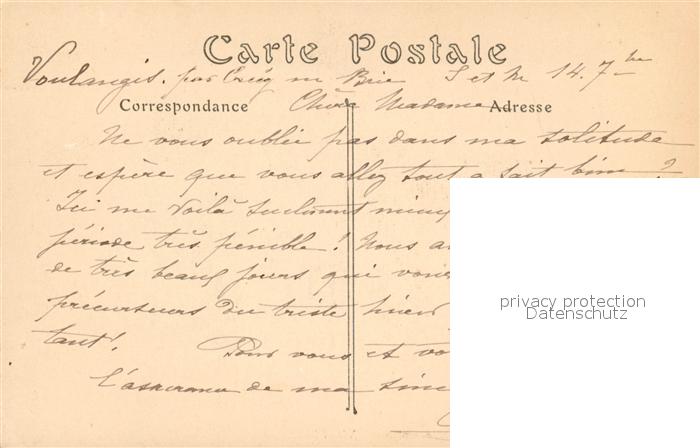 Carte Postale
Voulangis. par Crécy en Brie S et M 14. 7bre
Correspondance Chère Madame Adresse
Ne vous oublie pas dans ma solitude
et espère que vous allez tout a fait bien ?
Ici me voilà seulement mieux
période très pénible ! Nous
de très beaux jours qui
précurseurs du triste hiver
tant !  Pour vous et
l'assurance de ma
privacy protection
Datenschutz